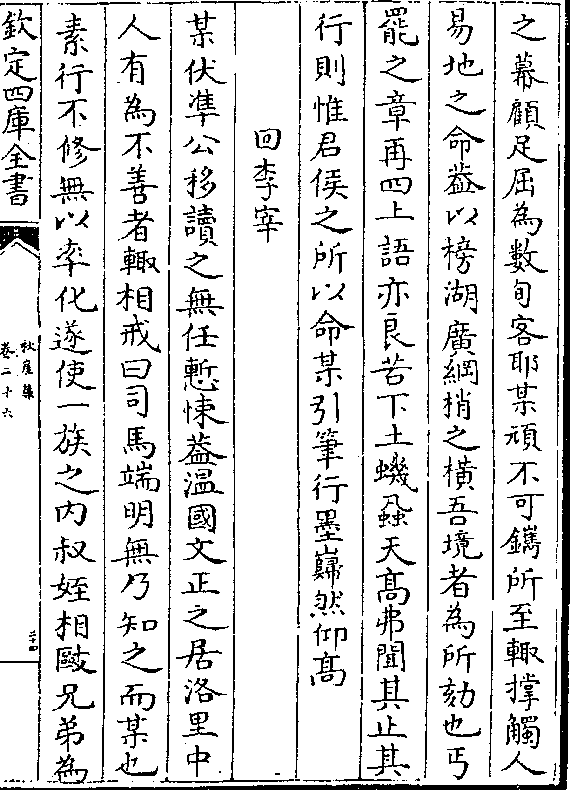 之幕顧足屈為數旬客耶某頑不可鐫所至輙撑觸人
易地之命葢以榜湖廣綱梢之橫吾境者為所劾也丐
罷之章再四上語亦良苦下土蟣蝨天髙弗聞其止其
行則惟君侯之所以命某引筆行墨巋然仰髙
回李宰
某伏凖公移讀之無任慙悚葢溫國文正之居洛里中
人有為不善者輙相戒曰司馬端明無乃知之而某也
素行不修無以率化遂使一族之内叔姪相毆兄弟為
欽定四庫全書
秋崖集
卷二十六
二十四